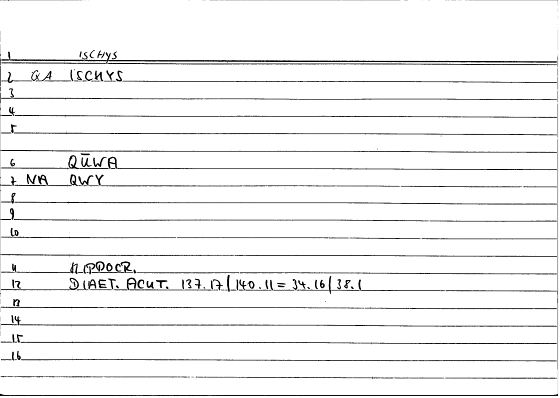 1 ISCHYS
2 GA ISCHYS
3
4
5
6 QŪWA
7 NA QWY
8
9
10
11 HIPPOCR.
12 DIAET. ACUT. 137.17 / 140.11 = 34.16 / 38.1
13
14
15
16